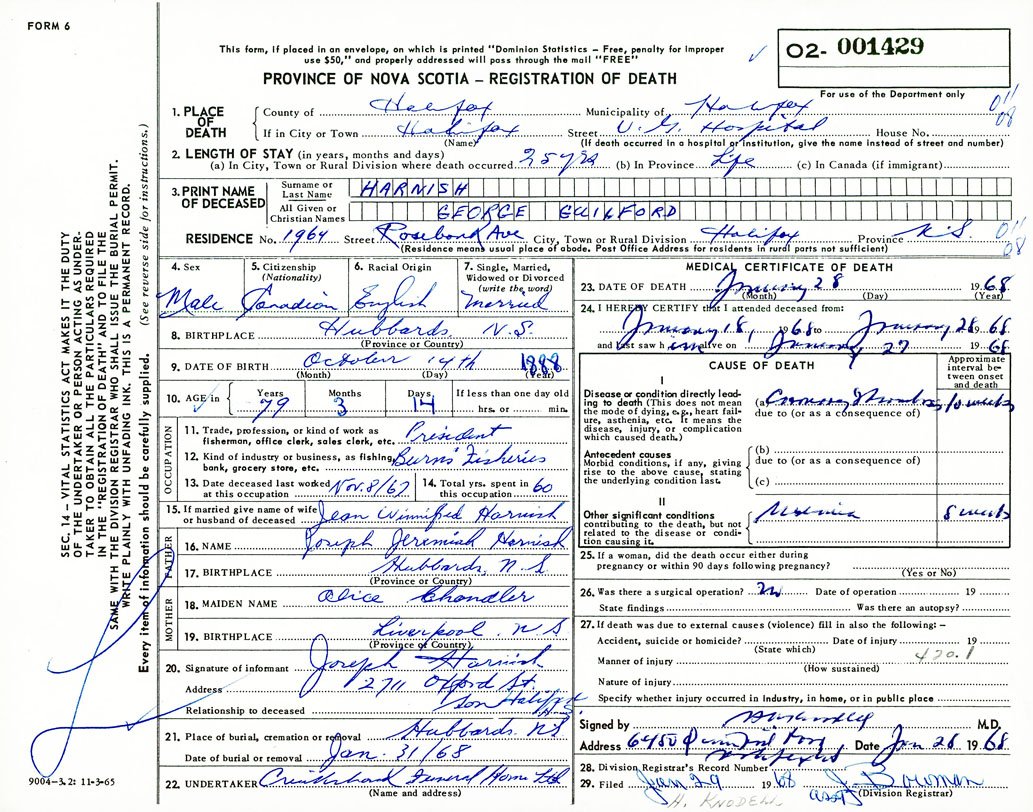 FORM 6
This form, if placed in an envelope, on which is printed "Dominion Statistics – Free, penalty for improper
use $50," and properly addressed will pass through the mail "FREE"
O2- 001429
For use of the Department only
PROVINCE OF NOVA SCOTIA – REGISTRATION OF DEATH
011
08
1. PLACE OF DEATH
County of Halifax Municipality of Halifax
If in City or Town Halifax Street V. G. Hospital House No.
(Name) (If death occurred in a hospital or institution, give the name instead of street and number)
2. LENGTH OF STAY (in years, months and days)
(a) In City, Town or Rural Division where death occurred. 25 yrs (b) In Province Life (c) In Canada (if immigrant)
3. PRINT NAME OF DECEASED
Surname or Last Name HARNISH
All Given or Christian Names GEORGE GUILFORD
RESIDENCE No. 1964 Street Rosebank Ave City, Town or Rural Division Halifax Province N.S.
(Residence means usual place of abode. Post Office Address for residents in rural parts not sufficient)
011
08
4. Sex Male
5. Citizenship (Nationality) Canadian
6. Racial Origin English
7. Single, Married, Widowed or Divorced (write the word) Married
8. BIRTHPLACE Hubbards, N.S.
(Province or Country)
9. DATE OF BIRTH October 14th 1888
(Month) (Day) (Year)
10. AGE in Years 79 Months 3 Days 14 If less than one day old hrs. or min.
OCCUPATION
11. Trade, profession, or kind of work as
fisherman, office clerk, sales clerk, etc. President
12. Kind of industry or business, as fishing,
bank, grocery store, etc. Burns Fisheries
13. Date deceased last worked at this occupation Nov. 8/67
14. Total yrs. spent in this occupation 60
15. If married give name of wife
or husband of deceased Jean Winnifred Harnish
FATHER
16. NAME Joseph Jeremiah Harnish
17. BIRTHPLACE Hubbards, N.S.
(Province or Country)
MOTHER
18. MAIDEN NAME Alice Chandler
19. BIRTHPLACE Liverpool, N S
(Province or Country)
20. Signature of informant Joseph Harnish
Address 2711 Oxford St.
Relationship to deceased Son Halifax
21. Place of burial, cremation or removal Hubbards. N.S
Date of burial or removal Jan. 31/68
22. UNDERTAKER Cruikshank Funeral Home Ltd
(Name and address)
MEDICAL CERTIFICATE OF DEATH
23. DATE OF DEATH January 28 1968
(Month) (Day) (Year)
24. I HEREBY CERTIFY that I attended deceased from:
January 18, 1968 to January 28 1968
and last saw him alive on January 27 1968
CAUSE OF DEATH
Approximate interval between onset and death
I
Disease or condition directly leading
to death (This does not mean
the mode of dying, e.g., heart failure,
asthenia, etc. It means the
disease, injury, or complication
which caused death.)
(a) Coronary Thrombosis 10 weeks
due to (or as a consequence of)
Antecedent causes
Morbid conditions, if any, giving
rise to the above cause, stating
the underlying condition last.
(b)
due to (or as a consequence of)
(c)
II
Other significant conditions
contributing to the death, but not
related to the disease or condition
causing it.
Uremia 8 weeks
25. If a woman, did the death occur either during
pregnancy or within 90 days following pregnancy?
(Yes or No)
26. Was there a surgical operation? No Date of operation 19
State findings Was there an autopsy?
27. If death was due to external causes (violence) fill in also the following: –
Accident, suicide or homicide? Date of injury 19
(State which)
420.1
Manner of injury
(How sustained)
Nature of injury
Specify whether injury occurred in industry, in home, or in public place
Signed by M.D.
Address 6450 Date Jan 28 1968
28. Division Registrar's Record Number
29. Filed Jan 29 1968 J. Bowman
(Division Registrar)
asst
H. KNODELL
SEC. 14 – VITAL STATISTICS ACT MAKES IT THE DUTY
OF THE UNDERTAKER OR PERSON ACTING AS UNDERTAKER
TO OBTAIN ALL THE PARTICULARS REQUIRED
IN THE "REGISTRATION OF DEATH" AND TO FILE THE
SAME WITH THE DIVISION REGISTRAR WHO SHALL ISSUE THE BURIAL PERMIT.
WRITE PLAINLY WITH UNFADING INK. THIS IS A PERMANENT RECORD.
Every item of information should be carefully supplied. (See reverse side for instructions.)
9004-3.2: 11-3-65